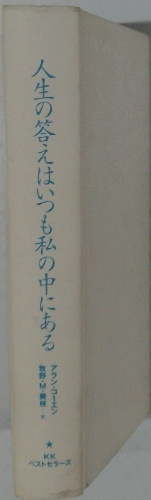 人生の答えはいつも私の中にある
アラン・コーエン
牧野・M・美枝 訳
★
KK
ベストセラーズ